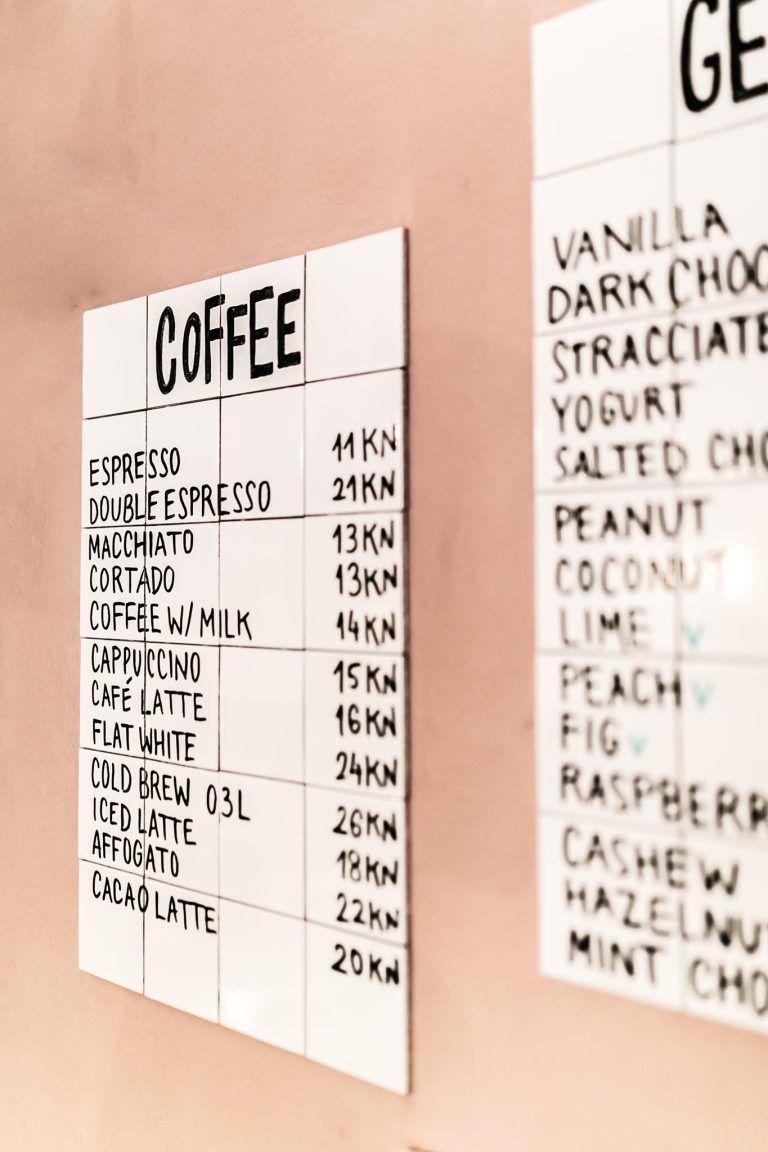 COFFEE
ESPRESSO 11KN
DOUBLE ESPRESSO 21KN
MACCHIATO 13KN
CORTADO 13KN
COFFEE W/ MILK 14KN
CAPPUCCINO 15KN
CAFÉ LATTE 16KN
FLAT WHITE 24KN
COLD BREW 03L 26KN
ICED LATTE 18KN
AFFOGATO 22KN
CACAO LATTE 20KN
GE
VANILLA
DARK CHOC
STRACCIATE
YOGURT
SALTED CHO
PEANUT
COCONUT
LIME V
PEACH V
FIG V
RASPBERR
CASHEW
HAZELNU
MINT CHO